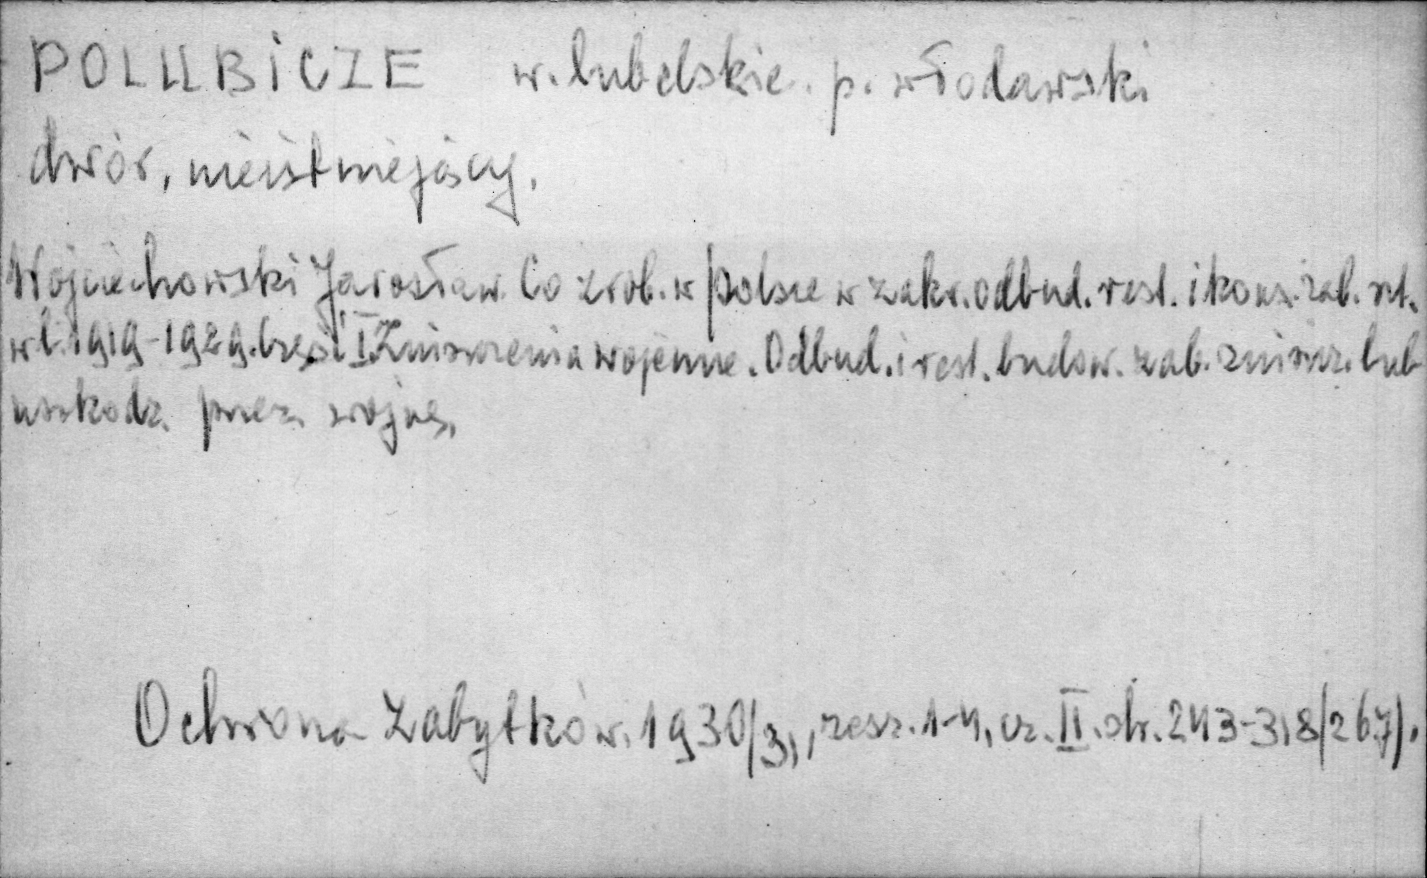 POLUBICZE w. lubelskie. p. włodawski
dwór, nieistniejący.
Wojciechowski Jarosław. Co zrob. w Polsce w zakr. odbud. rest. i kons. zab. szt.
w l. 1919-1929. Część I Zniszczenia wojenne. Odbud. i rest. budow. zab. zniszcz. lub
uszkodz. przez wojnę.
Ochrona Zabytków. 1930/31, zesz. 1-4, cz. II. str. 243-318/267/.